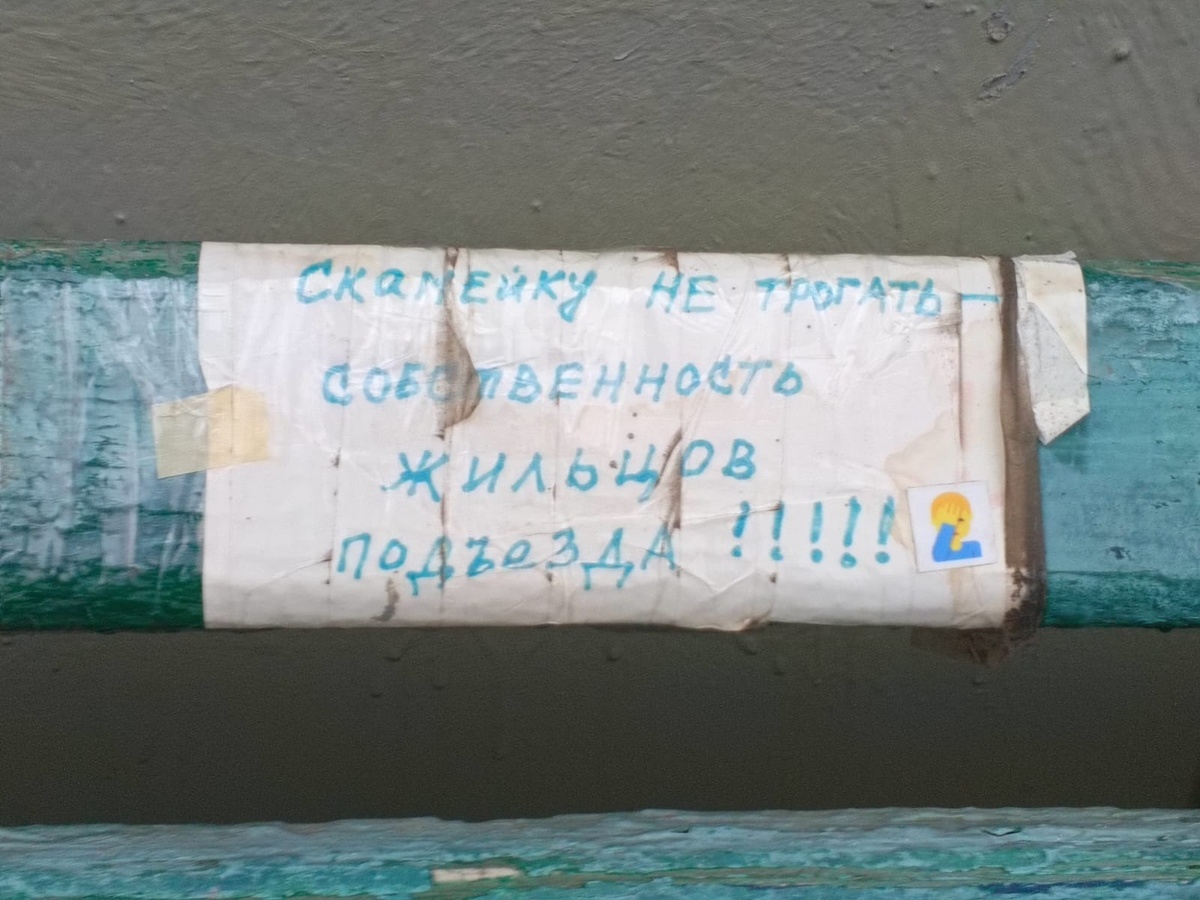 Скамейку не трогать —
собственность
жильцов
подъезда !!!!!